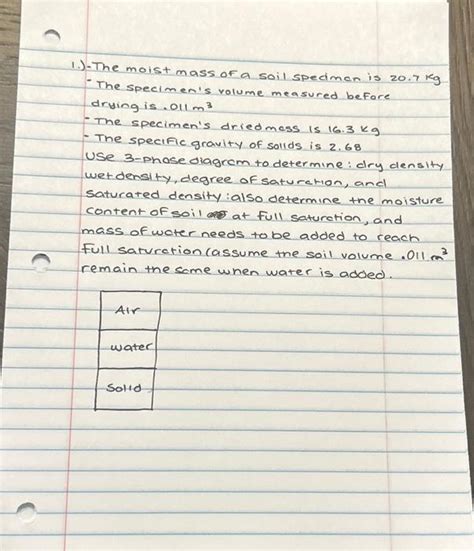 1.)-The moist mass of a soil specimen is 20.7 kg
- The specimen's volume measured before
drying is .011 m³
- The specimen's dried mass is 16.3 kg
- The specific gravity of solids is 2.68
Use 3-phase diagram to determine: dry density
wet density, degree of saturation, and
saturated density: also determine the moisture
content of soil at full saturation, and
mass of water needs to be added to reach
full saturation (assume the soil volume .011 m³
remain the same when water is added.
Air
water
Solid